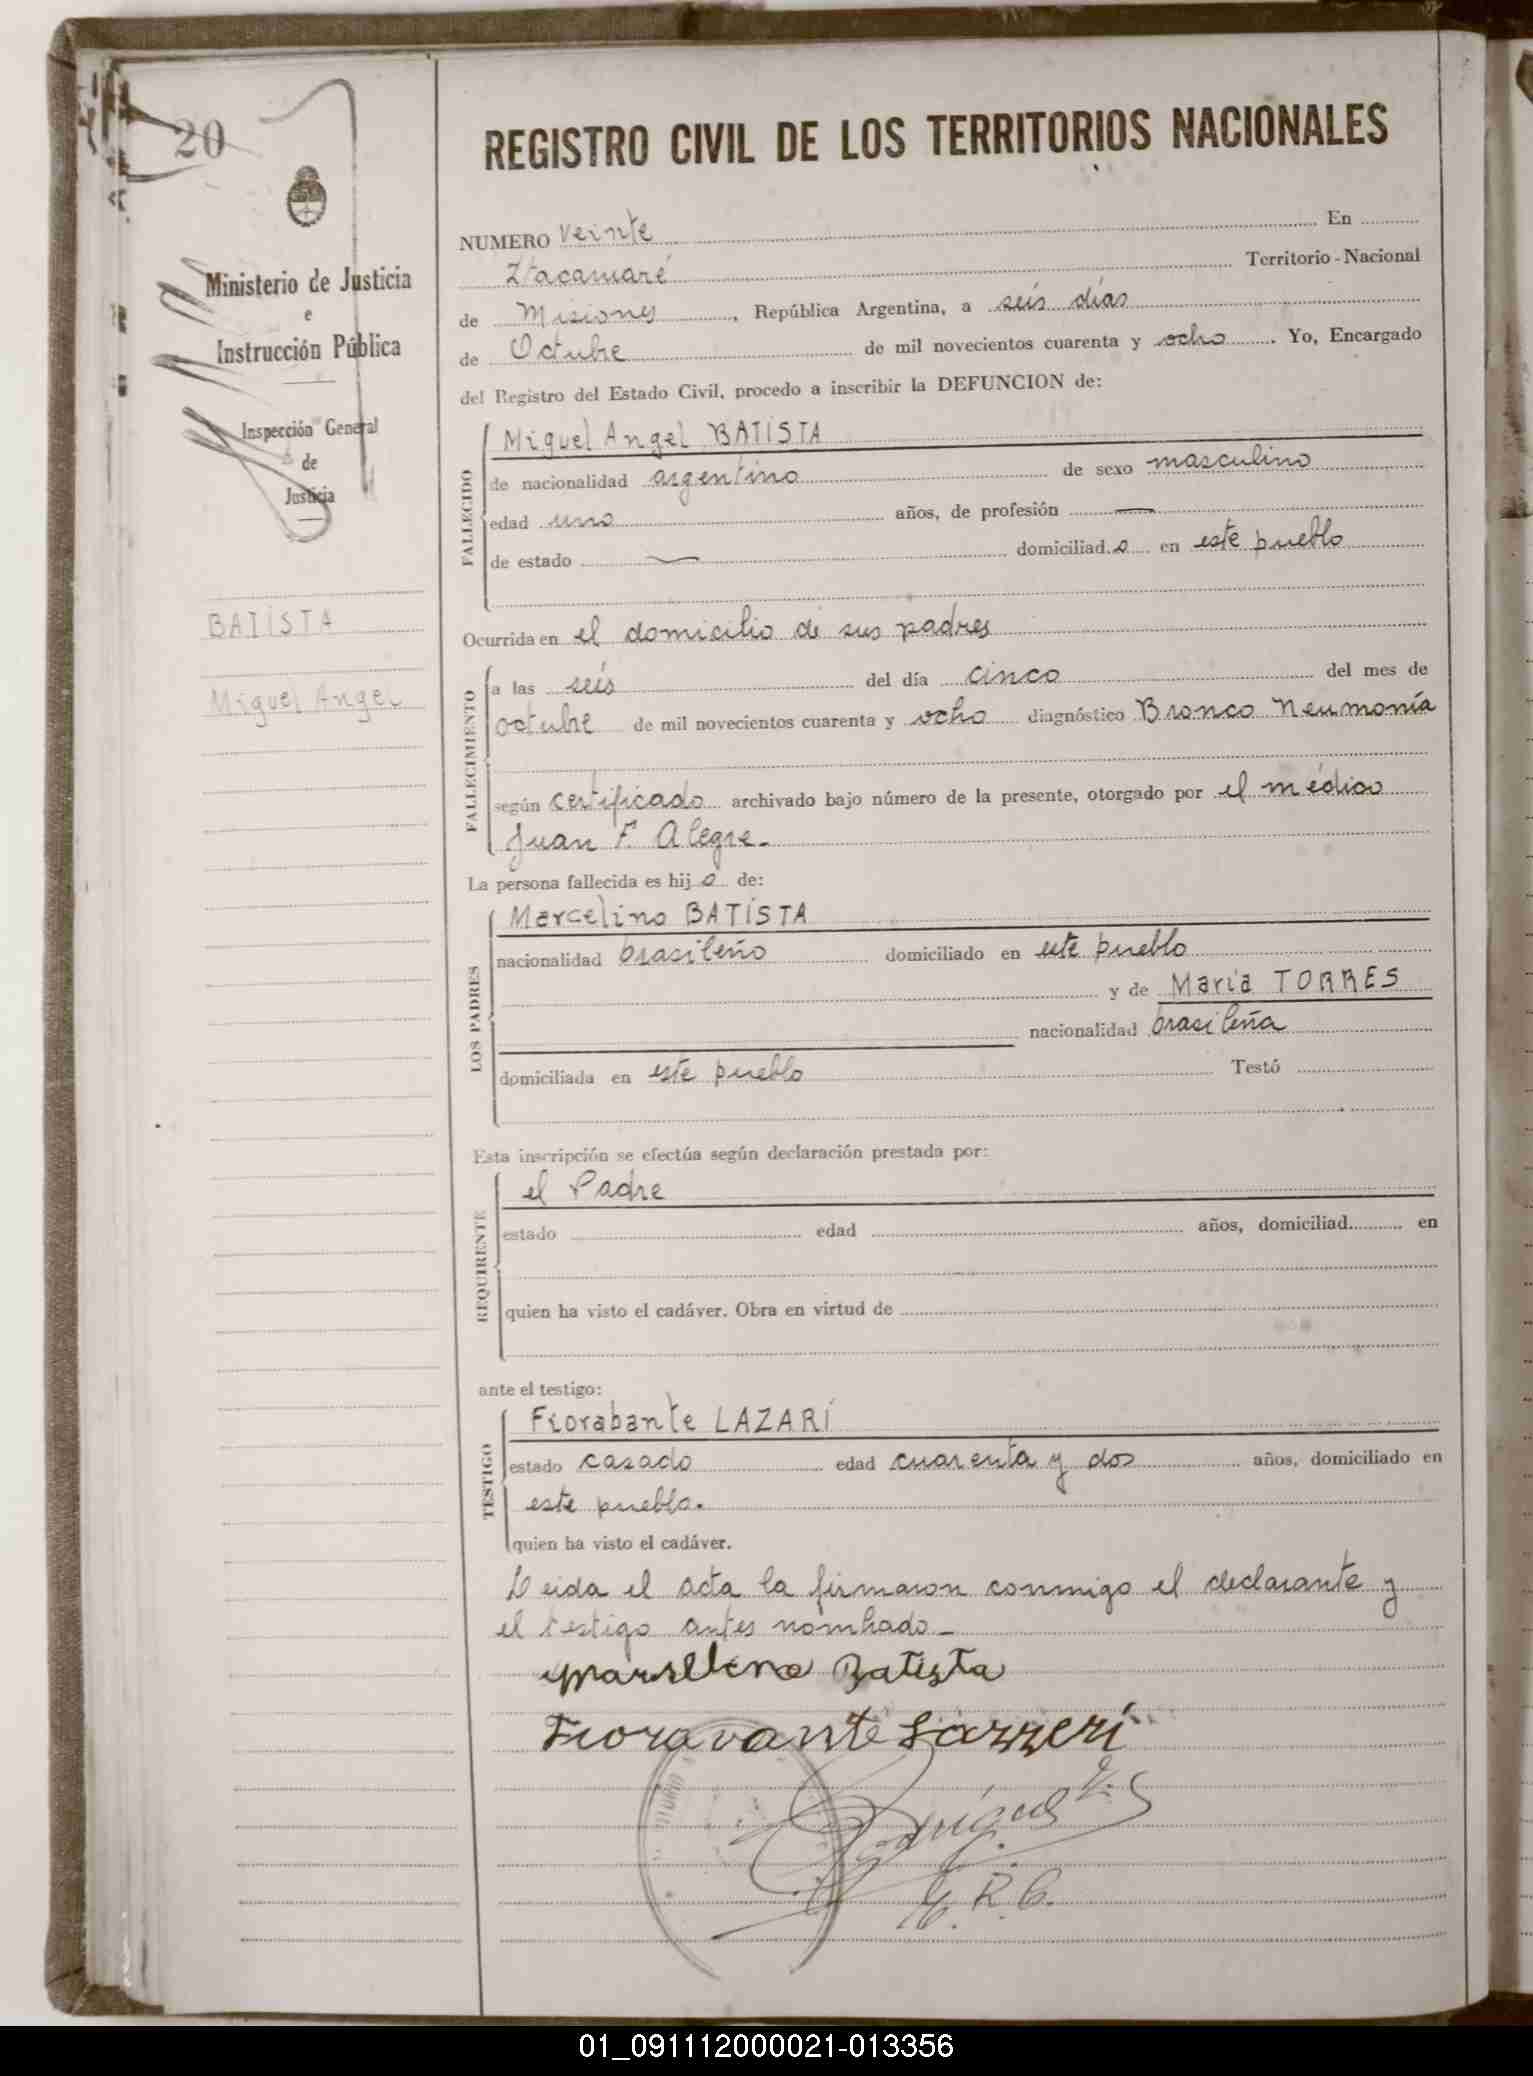 20
Ministerio de Justicia
e
Instrucción Pública
Inspección General
de
Justicia
BATISTA
Miguel Angel
REGISTRO CIVIL DE LOS TERRITORIOS NACIONALES
NUMERO Veinte En
Itacaruaré Territorio-Nacional
de Misiones, República Argentina, a seis días
de Octubre de mil novecientos cuarenta y ocho. Yo, Encargado
del Registro del Estado Civil, procedo a inscribir la DEFUNCION de:
FALLECIDO
Miguel Angel BATISTA
de nacionalidad argentino de sexo masculino
edad uno años, de profesión —
de estado — domiciliado en este pueblo
Ocurrida en el domicilio de sus padres
FALLECIMIENTO
a las seis del día cinco del mes de
octubre de mil novecientos cuarenta y ocho diagnóstico Bronco Neumonía
según certificado archivado bajo número de la presente, otorgado por el médico
Juan F. Alegre.
La persona fallecida es hijo de:
LOS PADRES
Marcelino BATISTA
nacionalidad brasileño domiciliado en este pueblo
y de María TORRES
nacionalidad brasileña
domiciliada en este pueblo Testó
Esta inscripción se efectúa según declaración prestada por:
REQUIRENTE
el Padre
estado edad años, domiciliad en
quien ha visto el cadáver. Obra en virtud de
ante el testigo:
TESTIGO
Fiorabante LAZARI
estado casado edad cuarenta y dos años, domiciliado en
este pueblo.
quien ha visto el cadáver.
Leida el acta la firmaron conmigo el declarante y
el testigo antes nombrado—
Marsileno Batista
Fioravante Lazzeri
E. R. C.
01_091112000021-013356